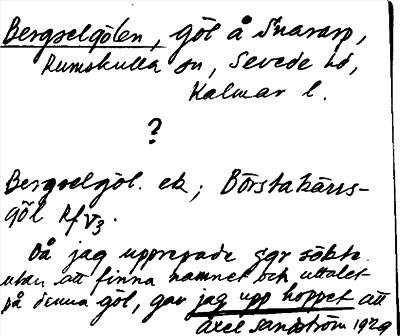 Bergselgölen, göl å Snararp,
Rumskulla sn, Sevede hd,
Kalmar l.
?
Bergselgöl. ek; Börstakärrs-
göl Rf V3.
Då jag upprepade ggr sökte
utan att finna namnet och uttalet
på denna göl, gav jag upp hoppet att
Axel Sandström 1929